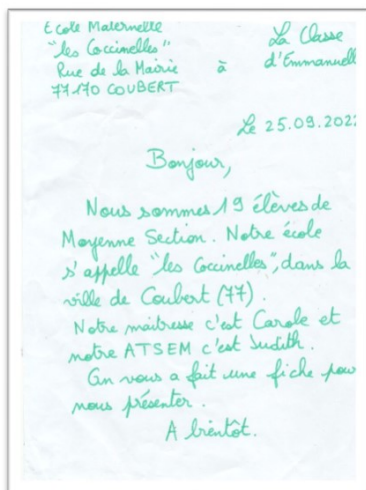 Ecole Maternelle
"les Coccinelles"
Rue de la Mairie
77170 COUBERT
à
La Classe
d'Emmanuell
Le 25.09.202
Bonjour,
Nous sommes 19 élèves de
Moyenne Section. Notre école
s'appelle "les Coccinelles", dans la
ville de Coubert (77).
Notre maîtresse c'est Carole et
notre ATSEM c'est Judith.
On vous a fait une fiche pour
nous présenter.
A bientôt.